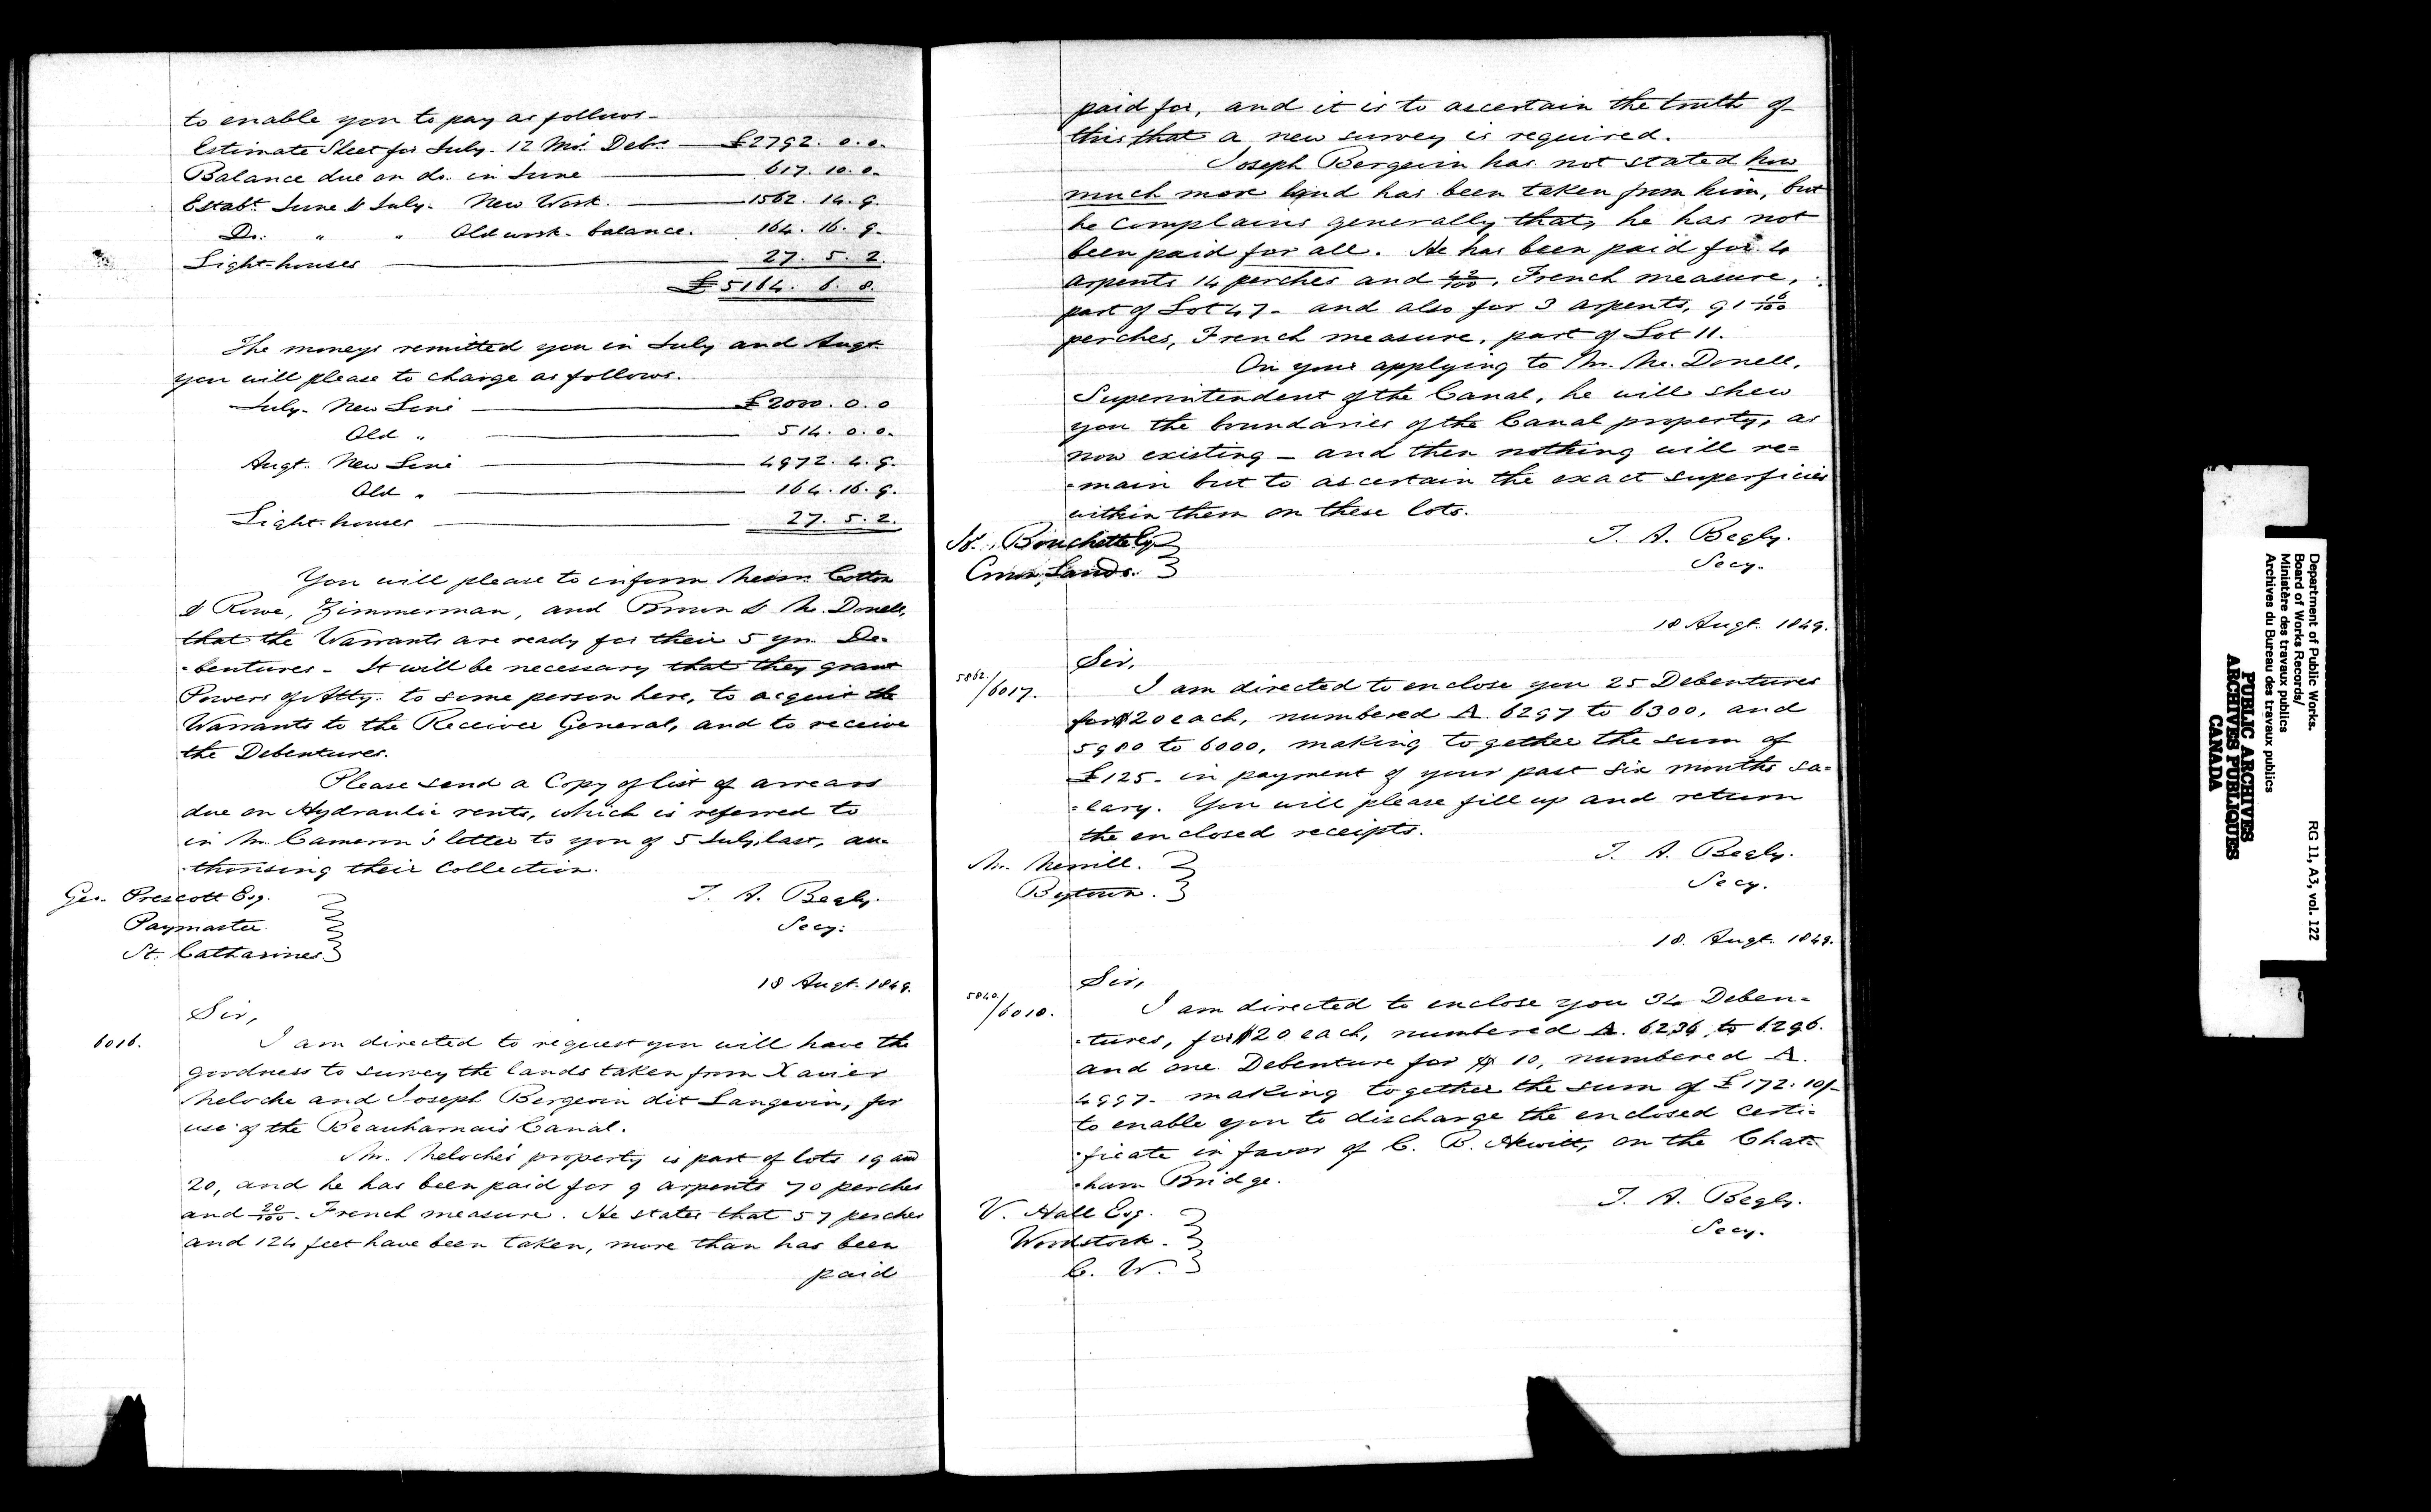 to enable you to pay as follows-
Estimate Sheet for July. 12 Mo. Debs. — £2792. 0. 0.
Balance due on do. in June — 617. 10. 0.
Estabt. June & July. New Work. — 1562. 14. 9.
Do. " " Old work. balance. 164. 16. 9.
Light-houses — 27. 5. 2.
£5164. 6. 8.
The moneys remitted you in July and Augt.
you will please to charge as follows.
July. New Line — £2000. 0. 0
Old " — 514. 0. 0.
Augt. New Line — 4972. 4. 9.
Old " — 164. 16. 9.
Light-houses — 27. 5. 2.
You will please to inform Messrs. Cotton
& Rowe, Zimmerman, and Brown & Mc. Donell,
that the Warrants are ready for their 5 yr. De-
-bentures - It will be necessary that they grant
Powers of Atty. to some person here, to acquit the
Warrants to the Receiver General, and to receive
the Debentures.
Please send a Copy of list of arrears
due on Hydraulic rents, which is referred to
in Mr. Cameron's letter to you of 5 July, last, au-
-thorising their Collection.
Geo. Prescott Esq.
Paymaster.
St. Catharines
T. A. Begly.
Secy.
18 Augt. 1849.
6016.
Sir,
I am directed to request you will have the
goodness to survey the lands taken from Xavier
Meloche and Joseph Bergevin dit Langevin, for
use of the Beauharnais Canal.
Mr. Meloche's property is part of lots 19 and
20, and he has been paid for 9 arpents 70 perches
and 20/100. French measure. He states that 57 perches
and 124 feet have been taken, more than has been
paid
paid for, and it is to ascertain the truth of
this, that a new survey is required.
Joseph Bergevin has not stated how
much more land has been taken from him, but
he complains generally that, he has not
been paid for all. He has been paid for 4
arpents 14 perches and 42/100, French measure,
part of Lot 47. and also for 3 arpents, 91 16/100
perches, French measure, part of Lot 11.
On your applying to Mr. Mc. Donell,
Superintendent of the Canal, he will shew
you the boundaries of the Canal property, as
now existing - and then nothing will re-
-main but to ascertain the exact superficies
within them on these lots.
Js. Bouchette Esq
Crown Lands.
T. A. Begly.
Secy.
18 Augt. 1849.
5862./6017.
Sir,
I am directed to enclose you 25 Debentures
for $20 each, numbered A. 6297 to 6300, and
5980 to 6000, making together the sum of
£125- in payment of your past six months sa-
-lary. You will please fill up and return
the enclosed receipts.
Mr. Merrill.
Bytown.
T. A. Begly.
Secy.
18. Augt. 1849.
5840./6018.
Sir,
I am directed to enclose you 34 Deben-
-tures, for $20 each, numbered A. 6236, to 6296.
and one Debenture for $10, numbered A.
4997- making together the sum of £172. 10/-
to enable you to discharge the enclosed certi-
-ficate in favor of C. B. Hewitt, on the Chat-
-ham Bridge.
V. Hall Esq.
Woodstock.
C. W.
T. A. Begly.
Secy.
Department of Public Works. RG 11, A3, vol. 122
Board of Works Records/
Ministère des travaux publics
Archives du Bureau des travaux publics
PUBLIC ARCHIVES
ARCHIVES PUBLIQUES
CANADA